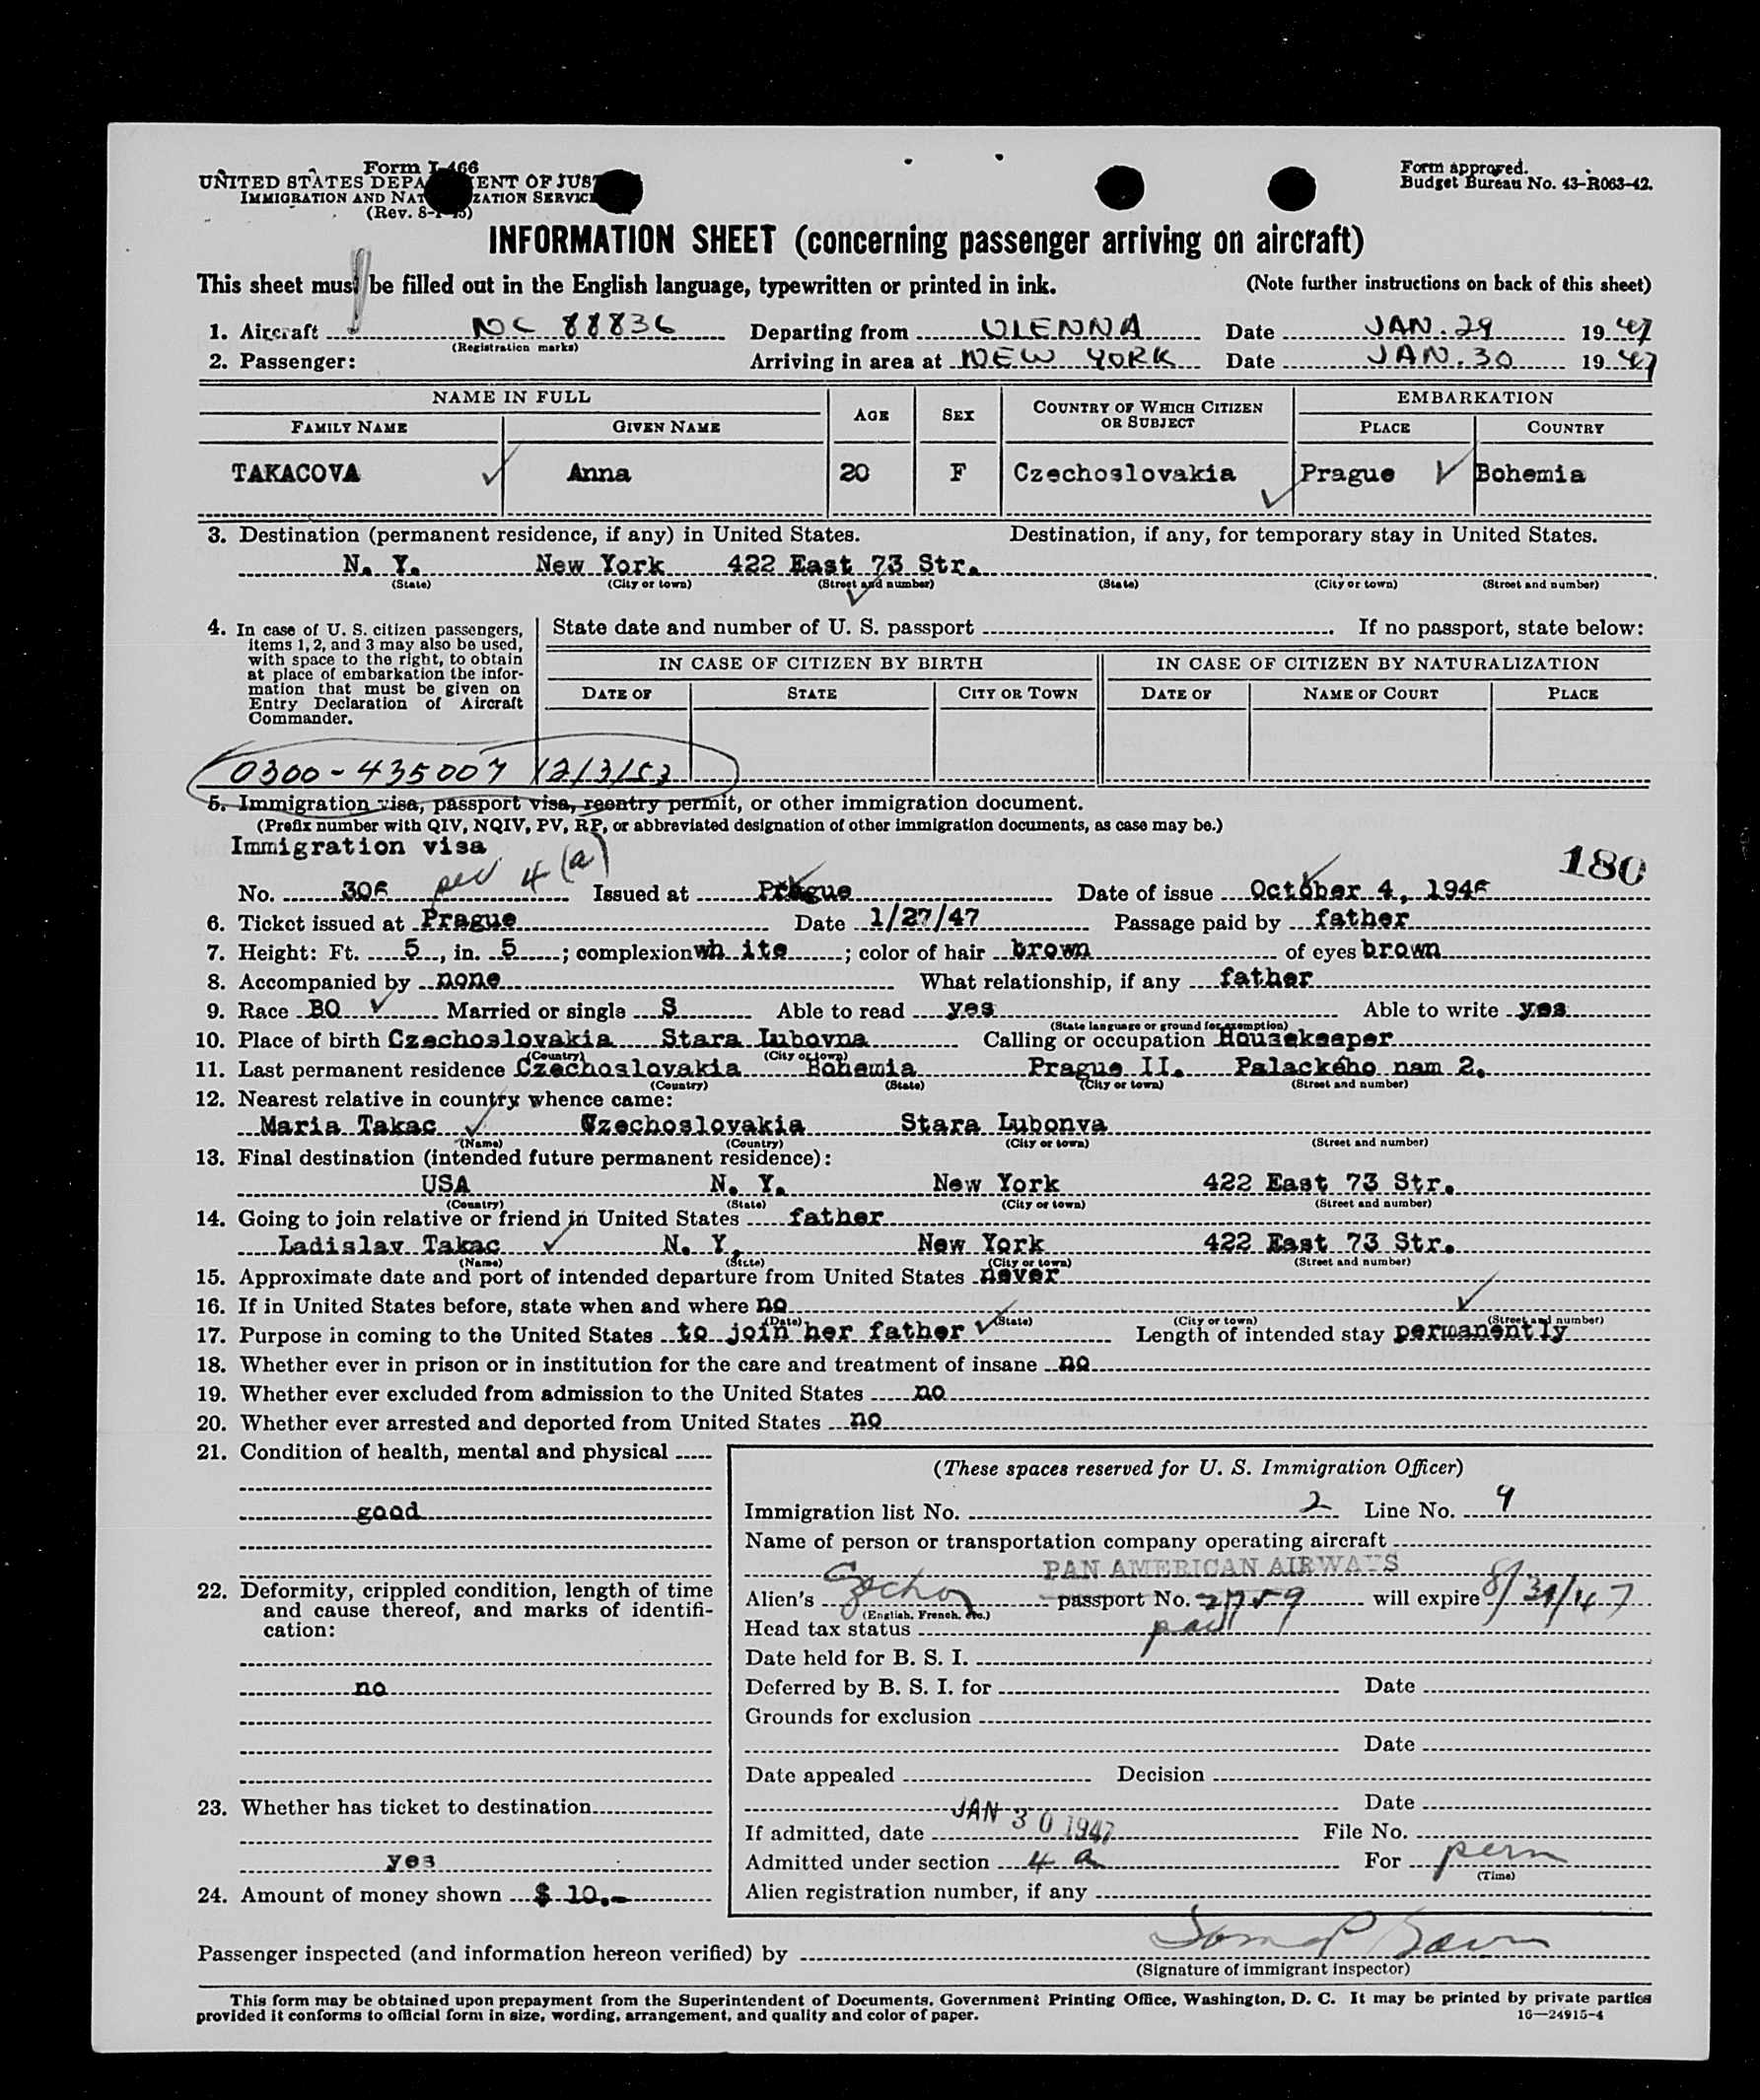 Form I-466
UNITED STATES DEPA ENT OF JUS
IMMIGRATION AND NAT ZATION SERVIC
(Rev. 8-1-45)
Form approved.
Budget Bureau No. 43-R063-42.
INFORMATION SHEET (concerning passenger arriving on aircraft)
This sheet must be filled out in the English language, typewritten or printed in ink. (Note further instructions on back of this sheet)
1. Aircraft NC 88836 Departing from VIENNA Date JAN. 29 1947
(Registration marks)
2. Passenger: Arriving in area at NEW YORK Date JAN. 30 1947
NAME IN FULL AGE SEX COUNTRY OF WHICH CITIZEN OR SUBJECT EMBARKATION
FAMILY NAME GIVEN NAME PLACE COUNTRY
TAKACOVA Anna 20 F Czechoslovakia Prague Bohemia
3. Destination (permanent residence, if any) in United States. Destination, if any, for temporary stay in United States.
N. Y. New York 422 East 73 Str.
(State) (City or town) (Street and number) (State) (City or town) (Street and number)
4. In case of U. S. citizen passengers,
items 1, 2, and 3 may also be used,
with space to the right, to obtain
at place of embarkation the infor-
mation that must be given on
Entry Declaration of Aircraft
Commander.
State date and number of U. S. passport . If no passport, state below:
IN CASE OF CITIZEN BY BIRTH IN CASE OF CITIZEN BY NATURALIZATION
DATE OF STATE CITY OR TOWN DATE OF NAME OF COURT PLACE
0300-435007 12/3/53
5. Immigration visa, passport visa, reentry permit, or other immigration document.
(Prefix number with QIV, NQIV, PV, RP, or abbreviated designation of other immigration documents, as case may be.)
Immigration visa
180
No. 306 4 (a) Issued at Prague Date of issue October 4, 1946
6. Ticket issued at Prague Date 1/27/47 Passage paid by father
7. Height: Ft. 5, in. 5; complexion wh ite; color of hair brown of eyes brown
8. Accompanied by none What relationship, if any father
9. Race BO Married or single S Able to read yes Able to write yes
(State language or ground for exemption)
10. Place of birth Czechoslovakia Stara Lubovna Calling or occupation Housekeeper
(Country) (City or town)
11. Last permanent residence Czechoslovakia Bohemia Prague II. Palackého nam 2.
(Country) (State) (City or town) (Street and number)
12. Nearest relative in country whence came:
Maria Takac Czechoslovakia Stara Lubonva
(Name) (Country) (City or town) (Street and number)
13. Final destination (intended future permanent residence):
USA N. Y. New York 422 East 73 Str.
(Country) (State) (City or town) (Street and number)
14. Going to join relative or friend in United States father
Ladislav Takac N. Y. New York 422 East 73 Str.
(Name) (State) (City or town) (Street and number)
15. Approximate date and port of intended departure from United States never
16. If in United States before, state when and where no
(Date) (State) (City or town) (Street and number)
17. Purpose in coming to the United States to join her father Length of intended stay permanently
18. Whether ever in prison or in institution for the care and treatment of insane no
19. Whether ever excluded from admission to the United States no
20. Whether ever arrested and deported from United States no
21. Condition of health, mental and physical
good
22. Deformity, crippled condition, length of time
and cause thereof, and marks of identifi-
cation:
no
23. Whether has ticket to destination
yes
24. Amount of money shown $ 10.-
(These spaces reserved for U. S. Immigration Officer)
Immigration list No. 2 Line No. 9
Name of person or transportation company operating aircraft
PAN AMERICAN AIRWAYS
Alien's Czecho passport No. will expire 8/31/47
(English, French, etc.)
Head tax status paid
Date held for B. S. I.
Deferred by B. S. I. for Date
Grounds for exclusion
Date
Date appealed Decision
Date
If admitted, date JAN 30 1947 File No.
Admitted under section 4 a For perm
(Time)
Alien registration number, if any
Passenger inspected (and information hereon verified) by
(Signature of immigrant inspector)
This form may be obtained upon prepayment from the Superintendent of Documents, Government Printing Office, Washington, D. C. It may be printed by private parties
provided it conforms to official form in size, wording, arrangement, and quality and color of paper.
16—24915-4